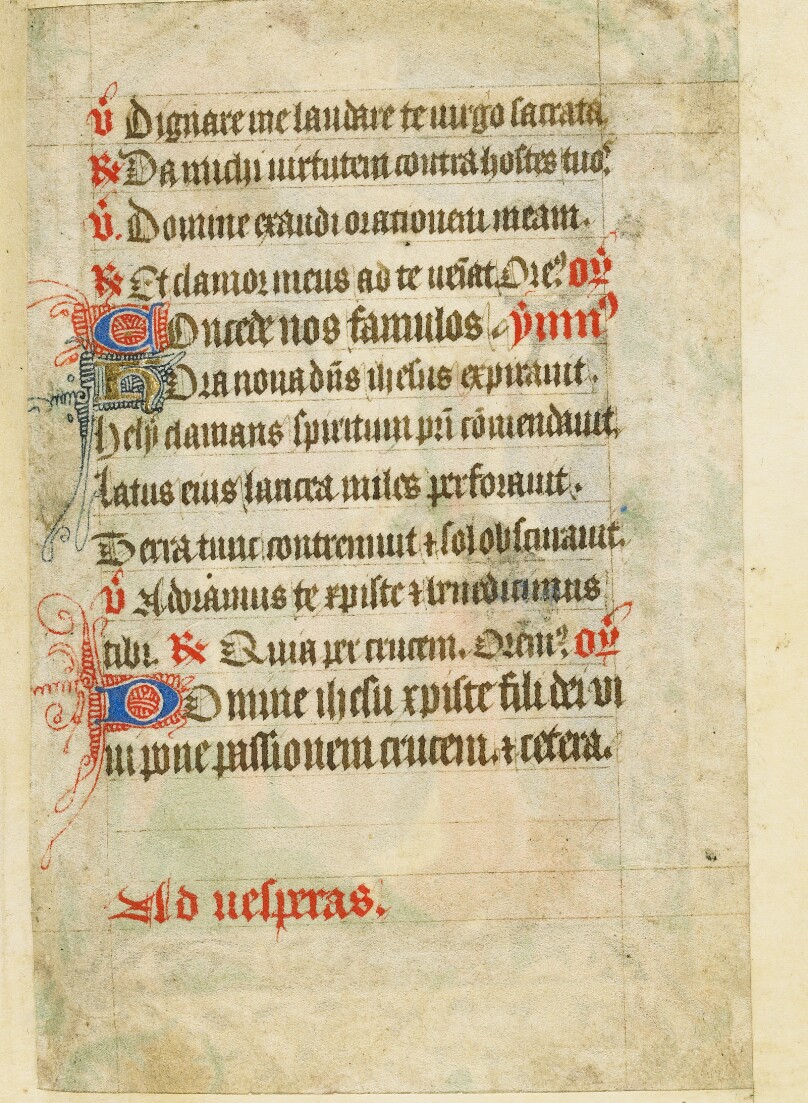 v̄ Dignare me laudare te uirgo sacrata
R̷ Da michi uirtutem contra hostes tuoꝰ.
v̄. Domine exaudi orationem meam.
R̷ Et clamor meus ad te ueīat. Oreꝰ. Or̄
Concede nos famulos. ymnꝰ
Hora nona dn̄s ihesus expirauit.
hely clamans spiritum pr̄i cōmendauit,
latus eius lancea miles perforauit.
Terra tunc contremuit ⁊ sol obscurauit.
v̄ Adoramus te xpiste ⁊ benedicimus
tibi. R̷ Quia per crucem. Oremꝰ. Or̄
Domine ihesu xpiste fili dei vi
ui pone passionem crucem. ⁊ cetera.
Ad uesperas.